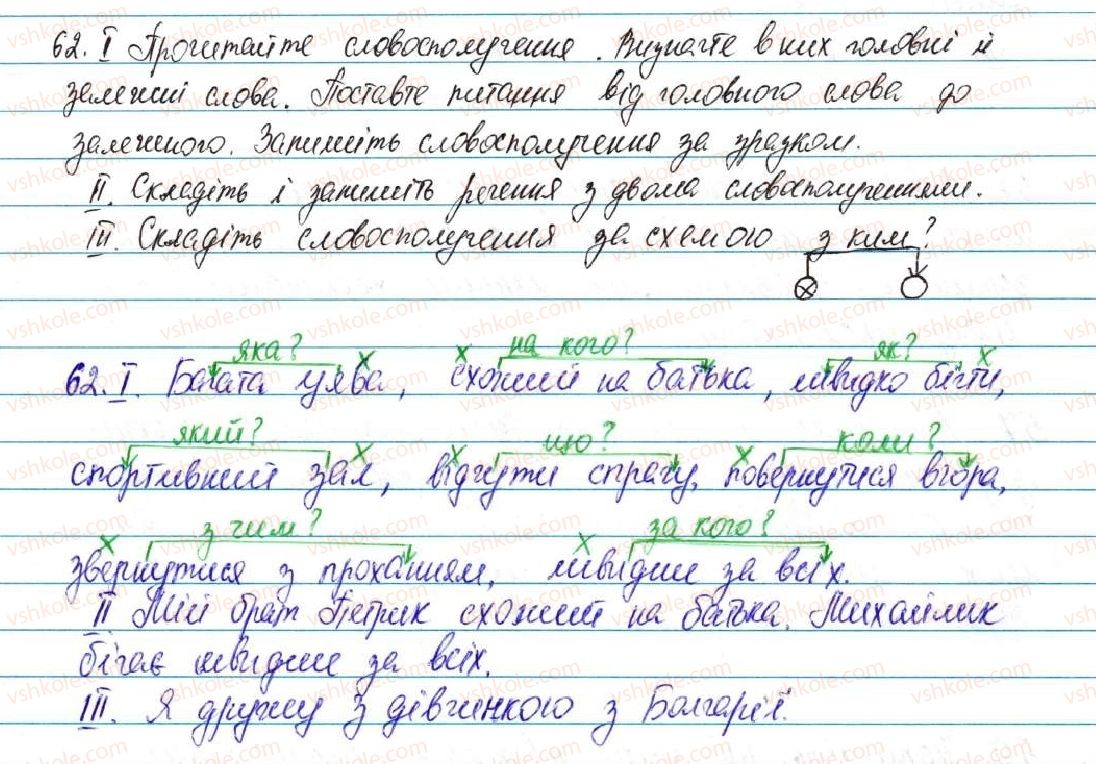 62. I Прочитайте словосполучення. Визначте в них головні й
залежні слова. Поставте питання від головного слова до
залежного. Запишіть словосполучення за зразком.
II. Складіть і запишіть речення з двома словосполученнями.
III. Складіть словосполучення за схемою з ким?
яка? х х на кого? як? х
62. I. Багата уява, схожий на батька, швидко бігти,
який? х х що? х коли?
спортивний зал, відчути спрагу, повернутися вчора,
х з чим? х за кого?
звернутися з проханням, швидше за всіх.
II Мій брат Петрик схожий на батька. Михайлик
бігає швидше за всіх.
III. Я дружу з дівчинкою з Болгарії.
vshkole.com